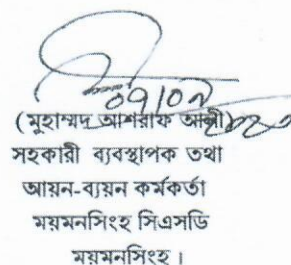 (মুহাম্মদ আশরাফ আলী)
সহকারী ব্যবস্থাপক তথা
আয়ন-ব্যয়ন কর্মকর্তা
ময়মনসিংহ সিএসডি
ময়মনসিংহ।